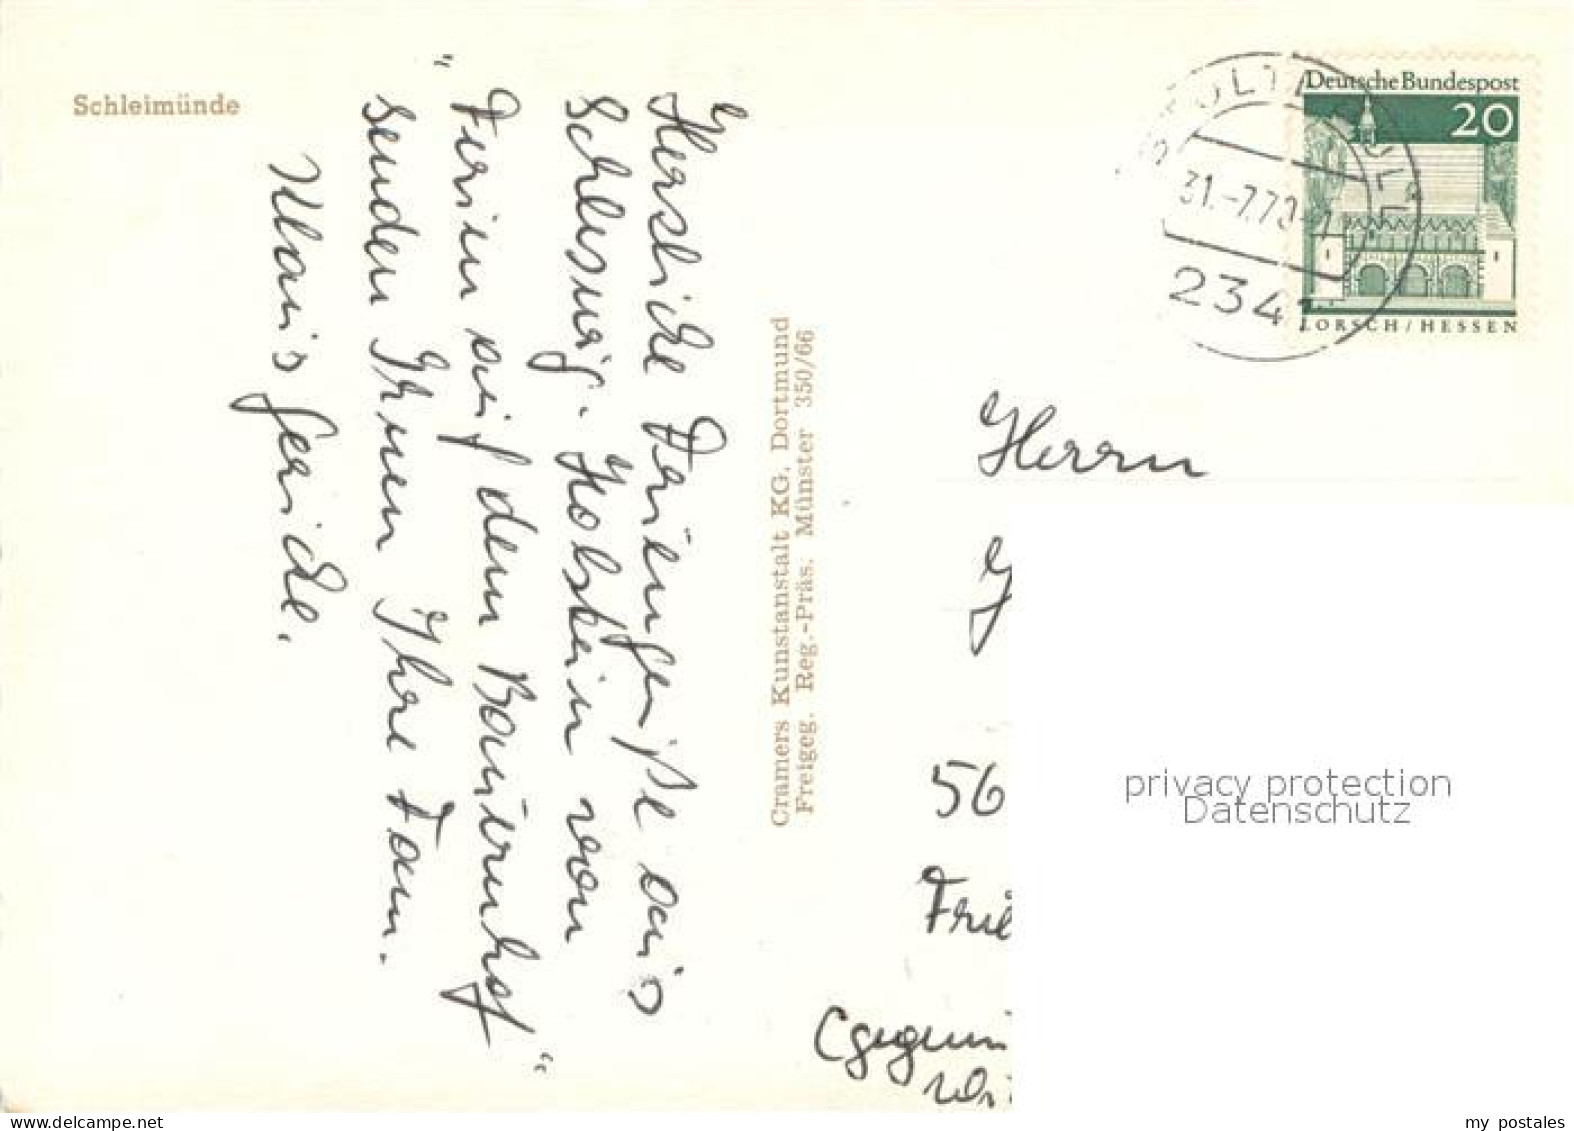 Schleimünde
Herzliche Feriengrüße aus
Schleswig-Holstein von
"Ferien auf dem Bauernhof"
senden Ihnen Ihre Fam.
Klaus Gericke.
Cramers Kunstanstalt KG, Dortmund
Freigeg. Reg.-Präs. Münster 350/66
Deutsche Bundespost
20
LORSCH/HESSEN
31.-7.70-
234
Herrn
G
56
Frie
privacy protection
Datenschutz
my postales